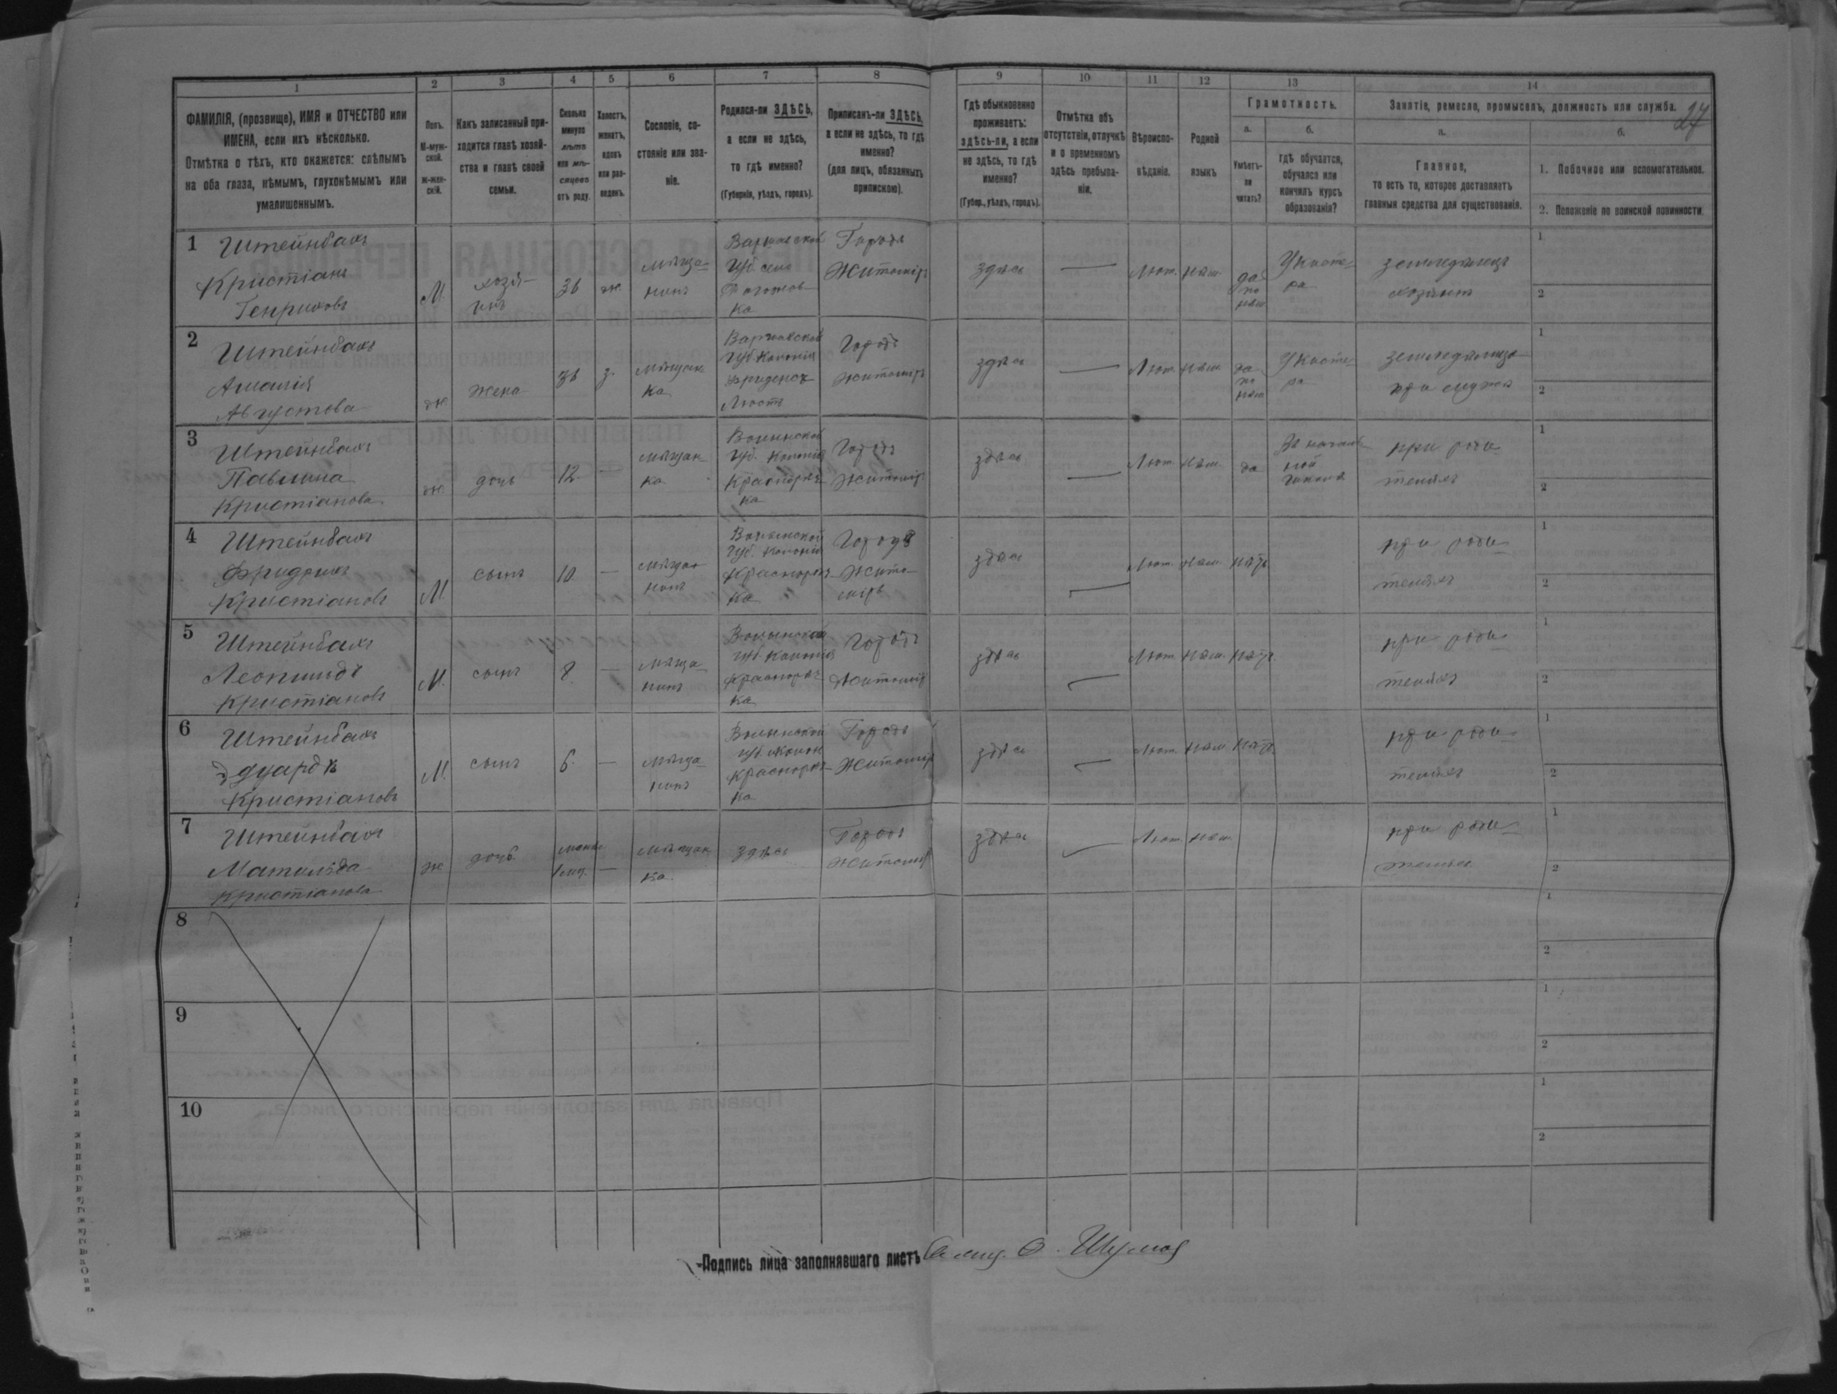 27
1 2 3 4 5 6 7 8 9 10 11 12 13 14
ФАМИЛІЯ, (прозвище), ИМЯ и ОТЧЕСТВО или
ИМЕНА, если ихъ нѣсколько.
Отмѣтка о тѣхъ, кто окажется: слѣпымъ
на оба глаза, нѣмымъ, глухонѣмымъ или
умалишеннымъ.
Полъ.
М-муж-
ской.
Ж-жен-
скій.
Какъ записанный при-
ходится главѣ хозяй-
ства и главѣ своей
семьи.
Сколько
минуло
лѣтъ
или мѣ-
сяцевъ
отъ роду.
Холостъ,
женатъ,
вдовъ
или раз-
веденъ.
Сословіе, со-
стояніе или зва-
ніе.
Родился-ли ЗДѢСЬ,
а если не здѣсь,
то гдѣ именно?
(Губернія, уѣздъ, городъ).
Приписанъ-ли ЗДѢСЬ,
а если не здѣсь, то гдѣ
именно?
(для лицъ, обязанныхъ
припискою).
Гдѣ обыкновенно
проживаетъ:
здѣсь-ли, а если
не здѣсь, то гдѣ
именно?
(Губер., уѣздъ, городъ).
Отмѣтка объ
отсутствіи, отлучкѣ
и о временномъ
здѣсь пребыва-
ніи.
Вѣроиспо-
вѣданіе.
Родной
языкъ
Грамотность.
а. б.
Умѣетъ-
ли
читать?
гдѣ обучается,
обучался или
кончилъ курсъ
образованія?
Занятіе, ремесло, промыселъ, должность или служба.
а. б.
Главное,
то есть то, которое доставляетъ
главныя средства для существованія.
1. Побочное или вспомогательное.
2. Положеніе по воинской повинности.
1 Штейнбахъ
Кристіанъ
Генриховъ
М хозя-
инъ 36 ж. мѣща-
нинъ
Варшавской
Губ
ка
Городъ
Житоміръ
здѣсь — Лют. нѣм. да
по
нѣм
земледѣлецъ
хозяинъ
1
2
2 Штейнбахъ
Амалія
Августова
ж. жена 36 з. мѣщан
ка
Варшавской
Губ. Колонія
Городъ
Житоміръ
здѣсь — Лют. нѣм. да
по
нѣм
при мужѣ
1
2
3 Штейнбахъ
Павлина
Кристіанова
ж. дочь 12 мѣщан
ка
Волынской
Губ. Колонія
Красноряч
ка
Городъ
Житоміръ
здѣсь — Лют. нѣм. да
школѣ
при роди
теляхъ
1
2
4 Штейнбахъ
Фридрихъ
Кристіановъ
М сынъ 10 — мѣща
нинъ
Волынской
Губ. Колонія
Краснорѣч
ка
Городъ
Жито-
миръ
здѣсь — Лют. нѣм. нѣтъ
при роди
теляхъ
1
2
5 Штейнбахъ
Леопольдъ
Кристіановъ
М. сынъ 8 — мѣща
нинъ
Волынской
Губ. Колонія
Краснорѣч
ка
Городъ
Житоміръ
здѣсь — Лют. нѣм. нѣтъ
при роди
теляхъ
1
2
6 Штейнбахъ
Эдуардъ
Кристіановъ
М. сынъ 6 — мѣща
нинъ
Волынской
Губ. Колон
Краснорѣч
ка
Городъ
Житоміръ
здѣсь — Лют. нѣм. нѣтъ
при роди
теляхъ
1
2
7 Штейнбахъ
Матильда
Кристіанова
ж дочь — мѣщан
ка
здѣсь
Городъ
Житоміръ
здѣсь — Лют. нѣм
при роди
теляхъ
1
2
8
1
2
9
1
2
10
1
2
Подпись лица заполнявшаго листъ